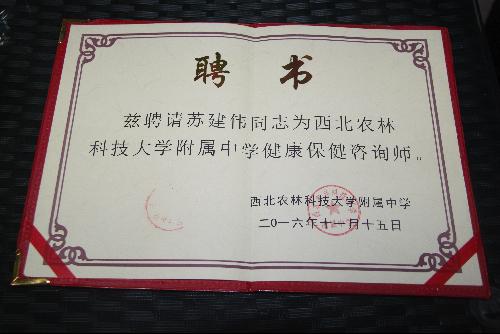 聘 书
兹聘请苏建伟同志为西北农林
科技大学附属中学健康保健咨询师。
西北农林科技大学附属中学
二〇一六年十一月十五日